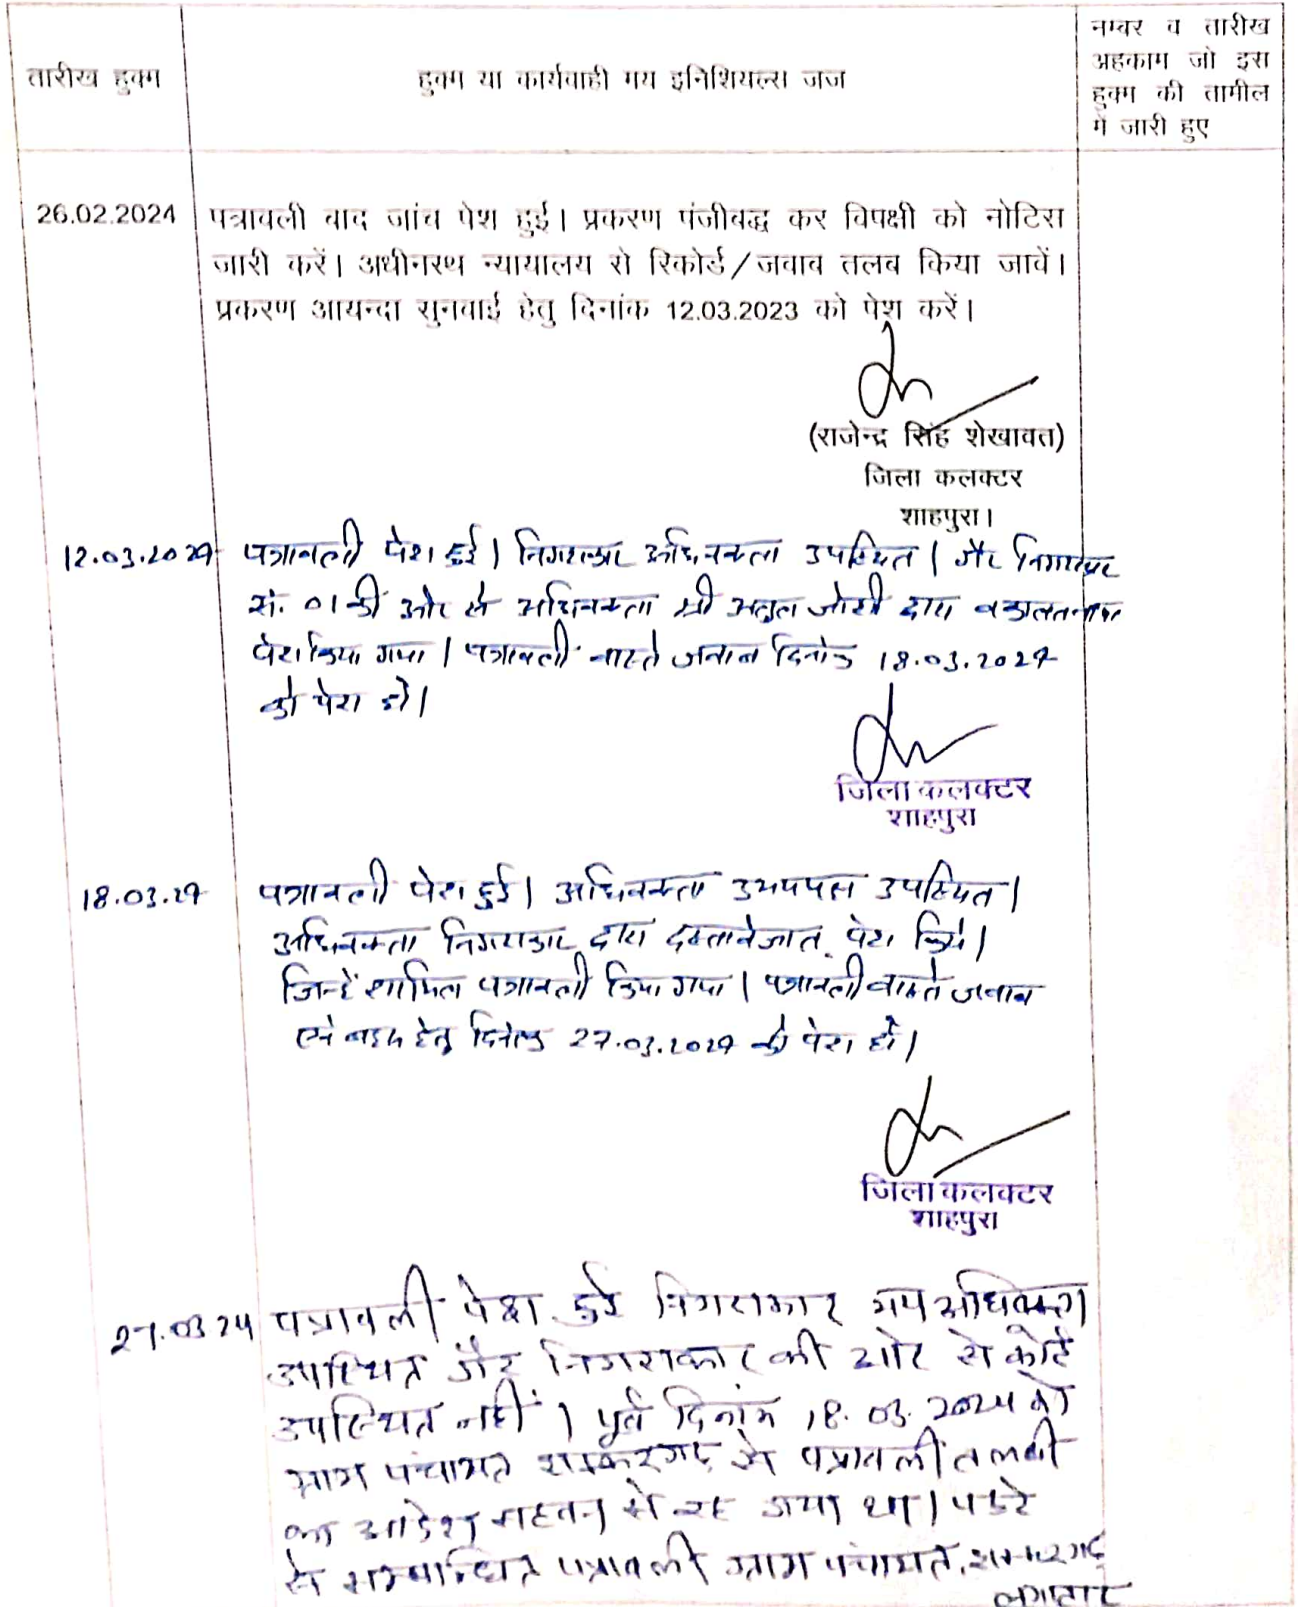 तारीख हुक्म
हुक्म या कार्यवाही मय इनिशियल्स जज
नम्बर व तारीख
अहकाम जो इस
हुक्म की तामील
में जारी हुए
26.02.2024
पत्रावली बाद जांच पेश हुई। प्रकरण पंजीबद्ध कर विपक्षी को नोटिस
जारी करें। अधीनस्थ न्यायालय से रिकोर्ड/जवाब तलब किया जावें।
प्रकरण आयन्दा सुनवाई हेतु दिनांक 12.03.2023 को पेश करें।
(राजेन्द्र सिंह शेखावत)
जिला कलक्टर
शाहपुरा।
12.03.2024 पत्रावली पेश हुई। निगराकार अधिवक्ता उपस्थित। गैर निगराकार
सं. 01 की ओर से अधिवक्ता श्री अतुल जोशी द्वारा वकालतनामा
पेश किया गया। पत्रावली वास्ते जवाब दिनांक 18.03.2024
को पेश हो।
जिला कलक्टर
शाहपुरा
18.03.24 पत्रावली पेश हुई। अधिवक्ता उभयपक्ष उपस्थित।
अधिवक्ता निगराकार द्वारा दस्तावेजात पेश किये।
जिन्हें शामिल पत्रावली किया गया। पत्रावली वास्ते जवाब
एवं बहस हेतु दिनांक 27.03.2024 को पेश हो।
जिला कलक्टर
शाहपुरा
27.03.24 पत्रावली पेश हुई निगराकार मय अधिवक्ता
उपस्थित गैर निगराकार की ओर से कोई
उपस्थित नहीं। पूर्व दिनांक 18.03.2024 को
ग्राम पंचायत शक्करगढ़ से पत्रावली तलबी
का आदेश सहवन से रह गया था। पट्टे
से सम्बन्धित पत्रावली ग्राम पंचायत, शक्करगढ़
लगातार